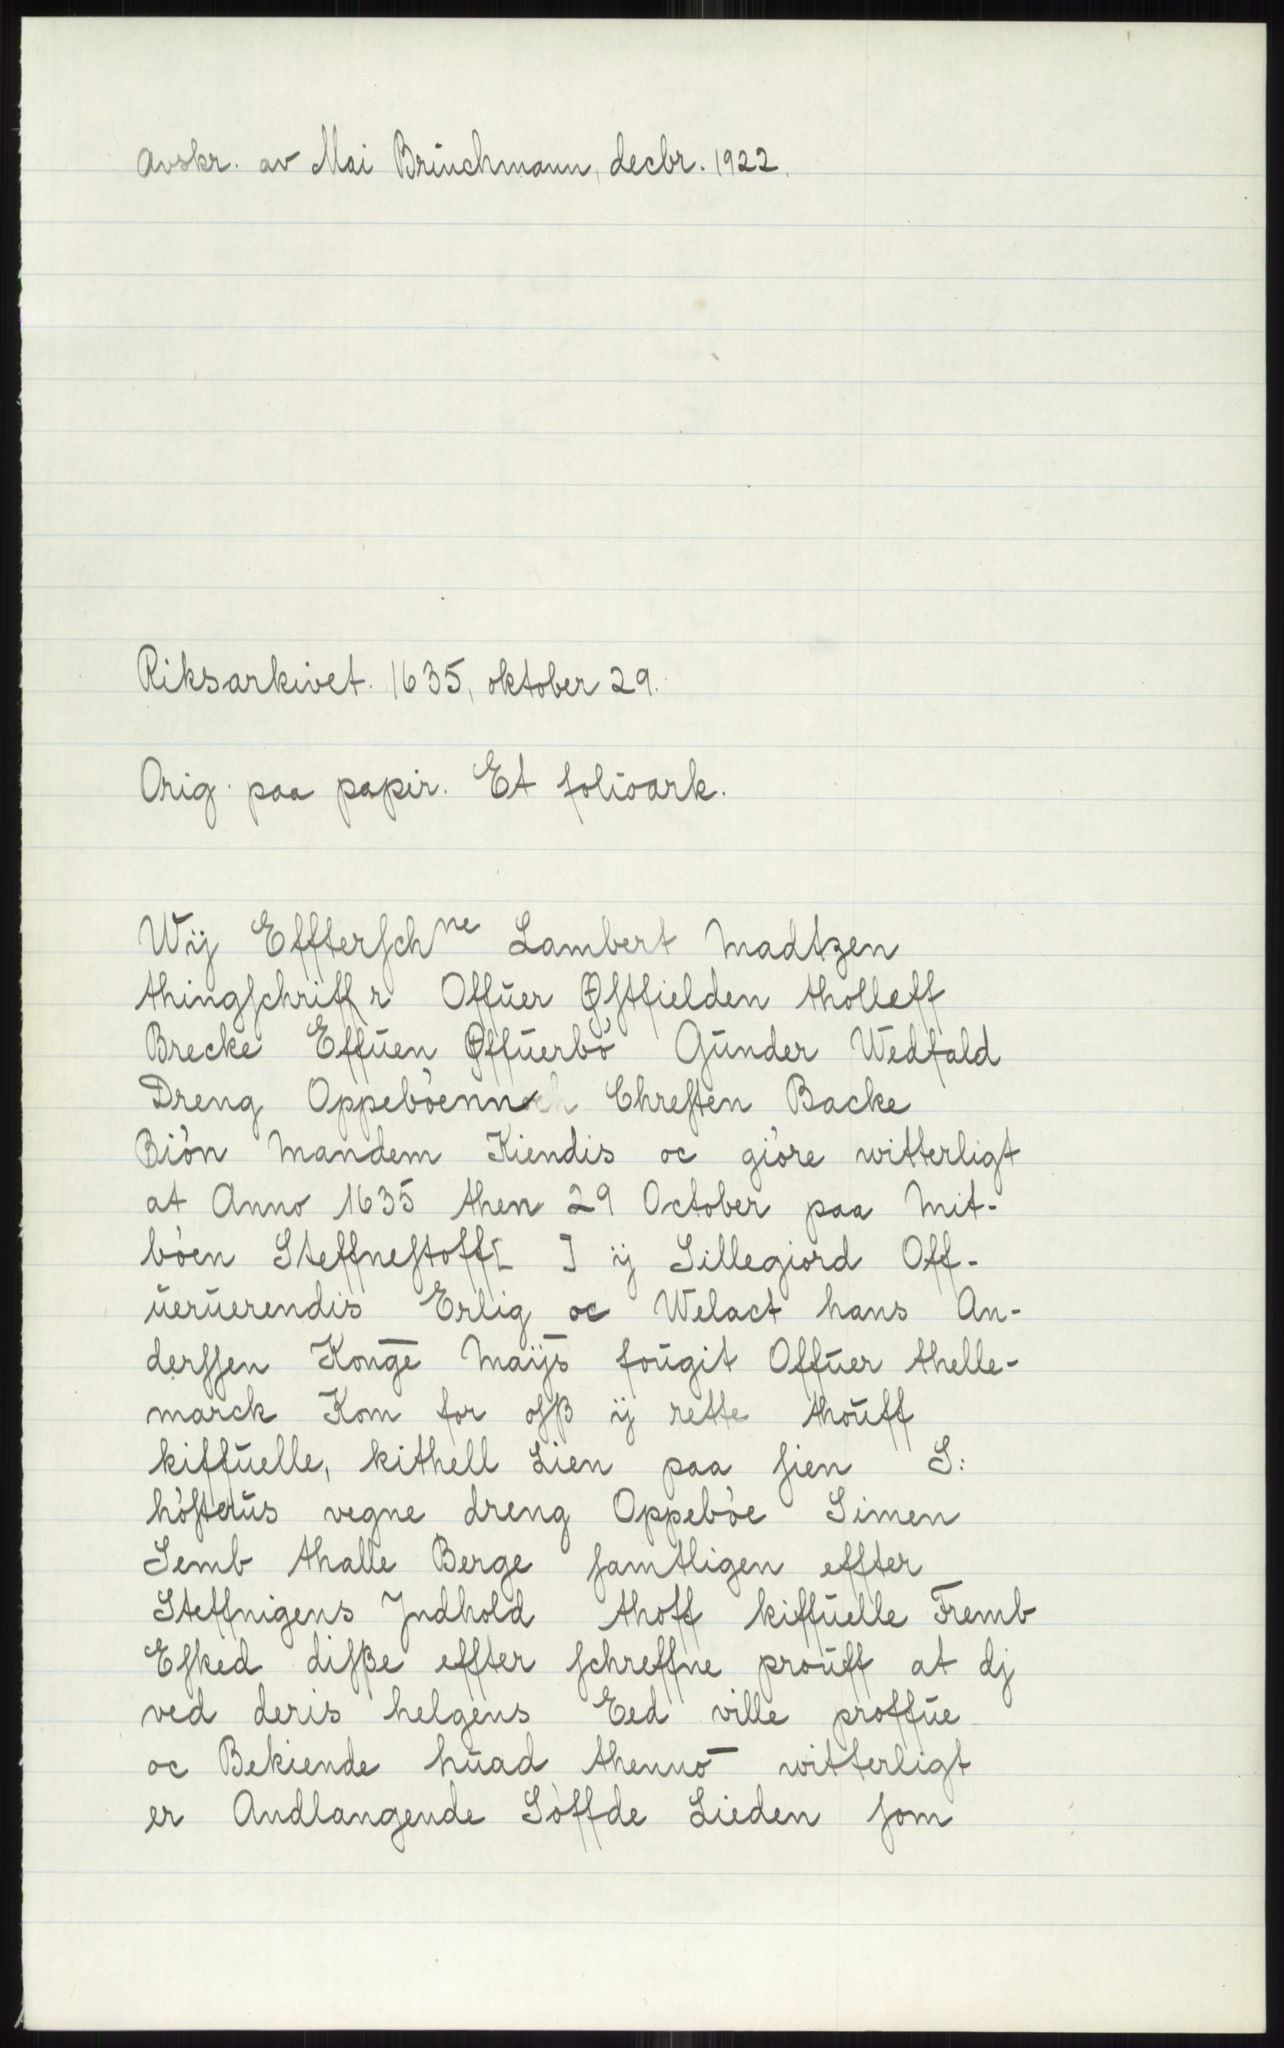 Avskr. av Mai Brinchmann, decbr. 1922.
Riksarkivet. 1635, oktober 29.
Orig. paa papir. Et folioark.
Wÿ Effterschne Lambert Madtzen
thingschriffr Offuer Østfielden tholleff
Brecke Effuen Øffuerbó Gunder Wedfald
Dreng Oppebóenn Chresten Backe
Bión Mandem Kiendis oc gióre witterligt
at Anno 1635 then 29 October paa Mit-
bóen Steffnestoff[ ] ÿ Sillegiord Off-
ueruerendis Erlig oc Welact hans An-
derssen Konge Maÿs fougit Offuer thelle-
marck Kom for osß ÿ rette thouff
kiffuelle, kithell Lien paa sien S:
hósterus vegne dreng Oppebóe Simen
Semb thalle Berge samtligen effter
Steffnigens Jndhold thoff kiffuelle Fremb
Esked disße effter schreffne prouff at dj
ved deris helgens Eed ville proffue
oc Bekiende huad thennó witterligt
er Andlangende Sóffde Lieden som